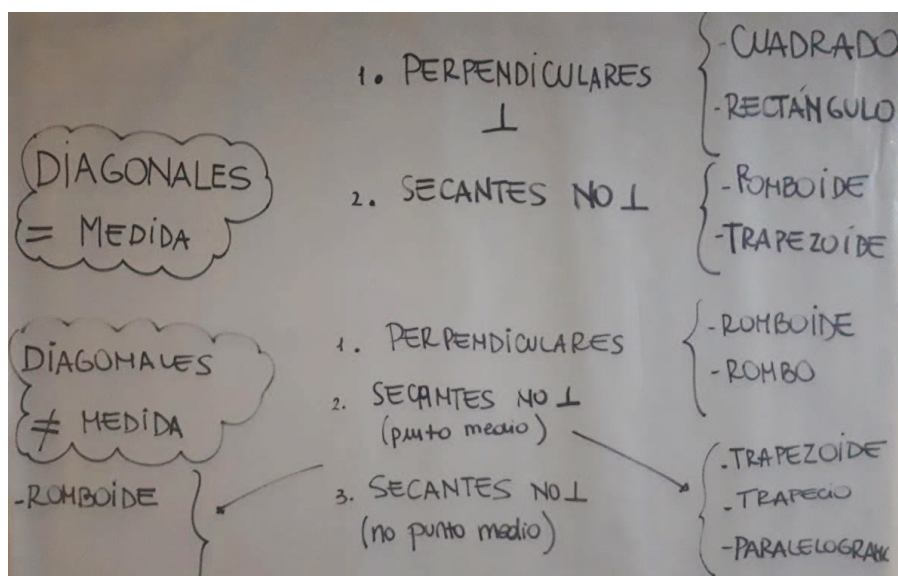 DIAGONALES
= MEDIDA
1. PERPENDICULARES
⊥
- CUADRADO
- RECTÁNGULO
2. SECANTES NO ⊥
- ROMBOIDE
- TRAPEZOIDE
DIAGONALES
≠ MEDIDA
1. PERPENDICULARES
- ROMBOIDE
- ROMBO
2. SECANTES NO ⊥
(punto medio)
- ROMBOIDE
3. SECANTES NO ⊥
(no punto medio)
- TRAPEZOIDE
- TRAPECIO
- PARALELOGRAM